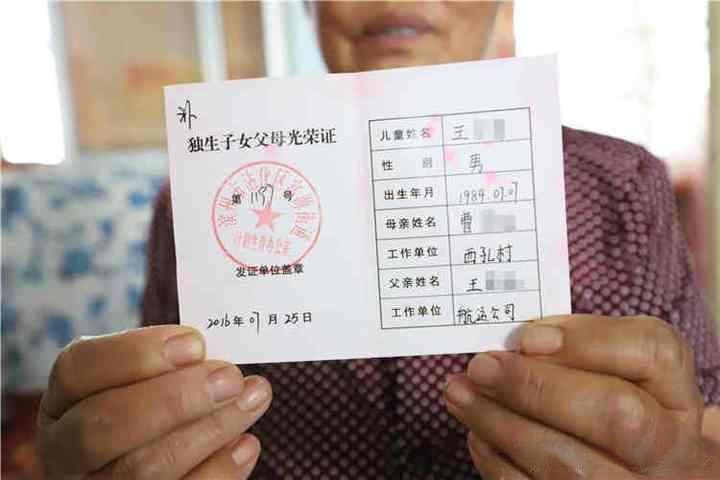 补
独生子女父母光荣证
第 1137 号
计划生育办公室
发证单位盖章
2016年07月25日
儿童姓名 王
性别 男
出生年月 1984.07.07
母亲姓名 曹
工作单位 西孔村
父亲姓名 王
工作单位 航运公司